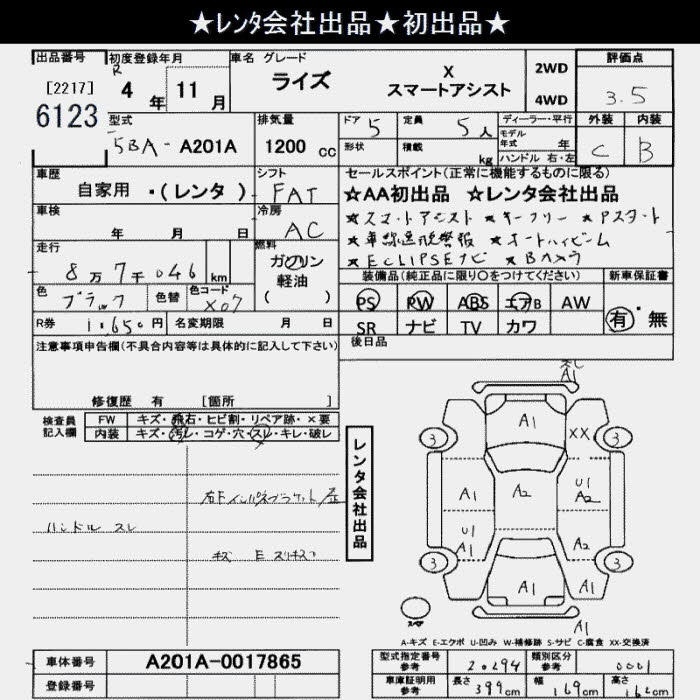 ★ﾚﾝﾀ会社出品★初出品★
出品番号 初度登録年月 車名 グレード 評価点
[2217] R 4年 11月 ライズ X スマートアシスト 2WD 4WD 3.5
6123
型式 排気量 ドア 5 定員 5人 ディーラー・平行 外装 内装
5BA-A201A 1200cc 形状 積載 kg モデル年式 年 C B
ハンドル 右・左
車歴 シフト セールスポイント(正常に機能するものに限る)
自家用・(レンタ) FAT ★AA初出品 ☆レンタ会社出品
車検 冷房 ★スマートアシスト ★キーフリー ★アスタート
年 月 日 AC ★車線逸脱警報 ★オートハイビーム
走行 燃料 ★ECLIPSEナビ ★Bカメラ
8万7千046km ガソリン 軽油 ( ) 装備品(純正品に限り〇をつけてください) 新車保証書
色 ブラック 色替 色コード X07 PS PW ABS エアB AW 有・無
R券 1,650円 名変期限 月 日 SR ナビ TV カワ
注意事項申告欄(不具合内容等は具体的に記入して下さい) 後日品
修復歴 有 [箇所 ]
検査員記入欄 FW キズ・飛石・ヒビ割・リペア跡・×要
内装 キズ・汚レ・コゲ・穴・スレ・キレ・破レ
レンタ会社出品
ハンドル スレ
A1
A1
3 XX 3
A1 A2 U1 A2
U1 A1 A1
3 3
A1 A1
A1
A-キズ E-エクボ U-凹み W-補修跡 S-サビ C-腐食 XX-交換済
車体番号 A201A-0017865 型式指定番号 参考 20294 類別区分 参考 0001
登録番号 車庫証明用 参考 長さ 399cm 幅 169cm 高さ 162cm